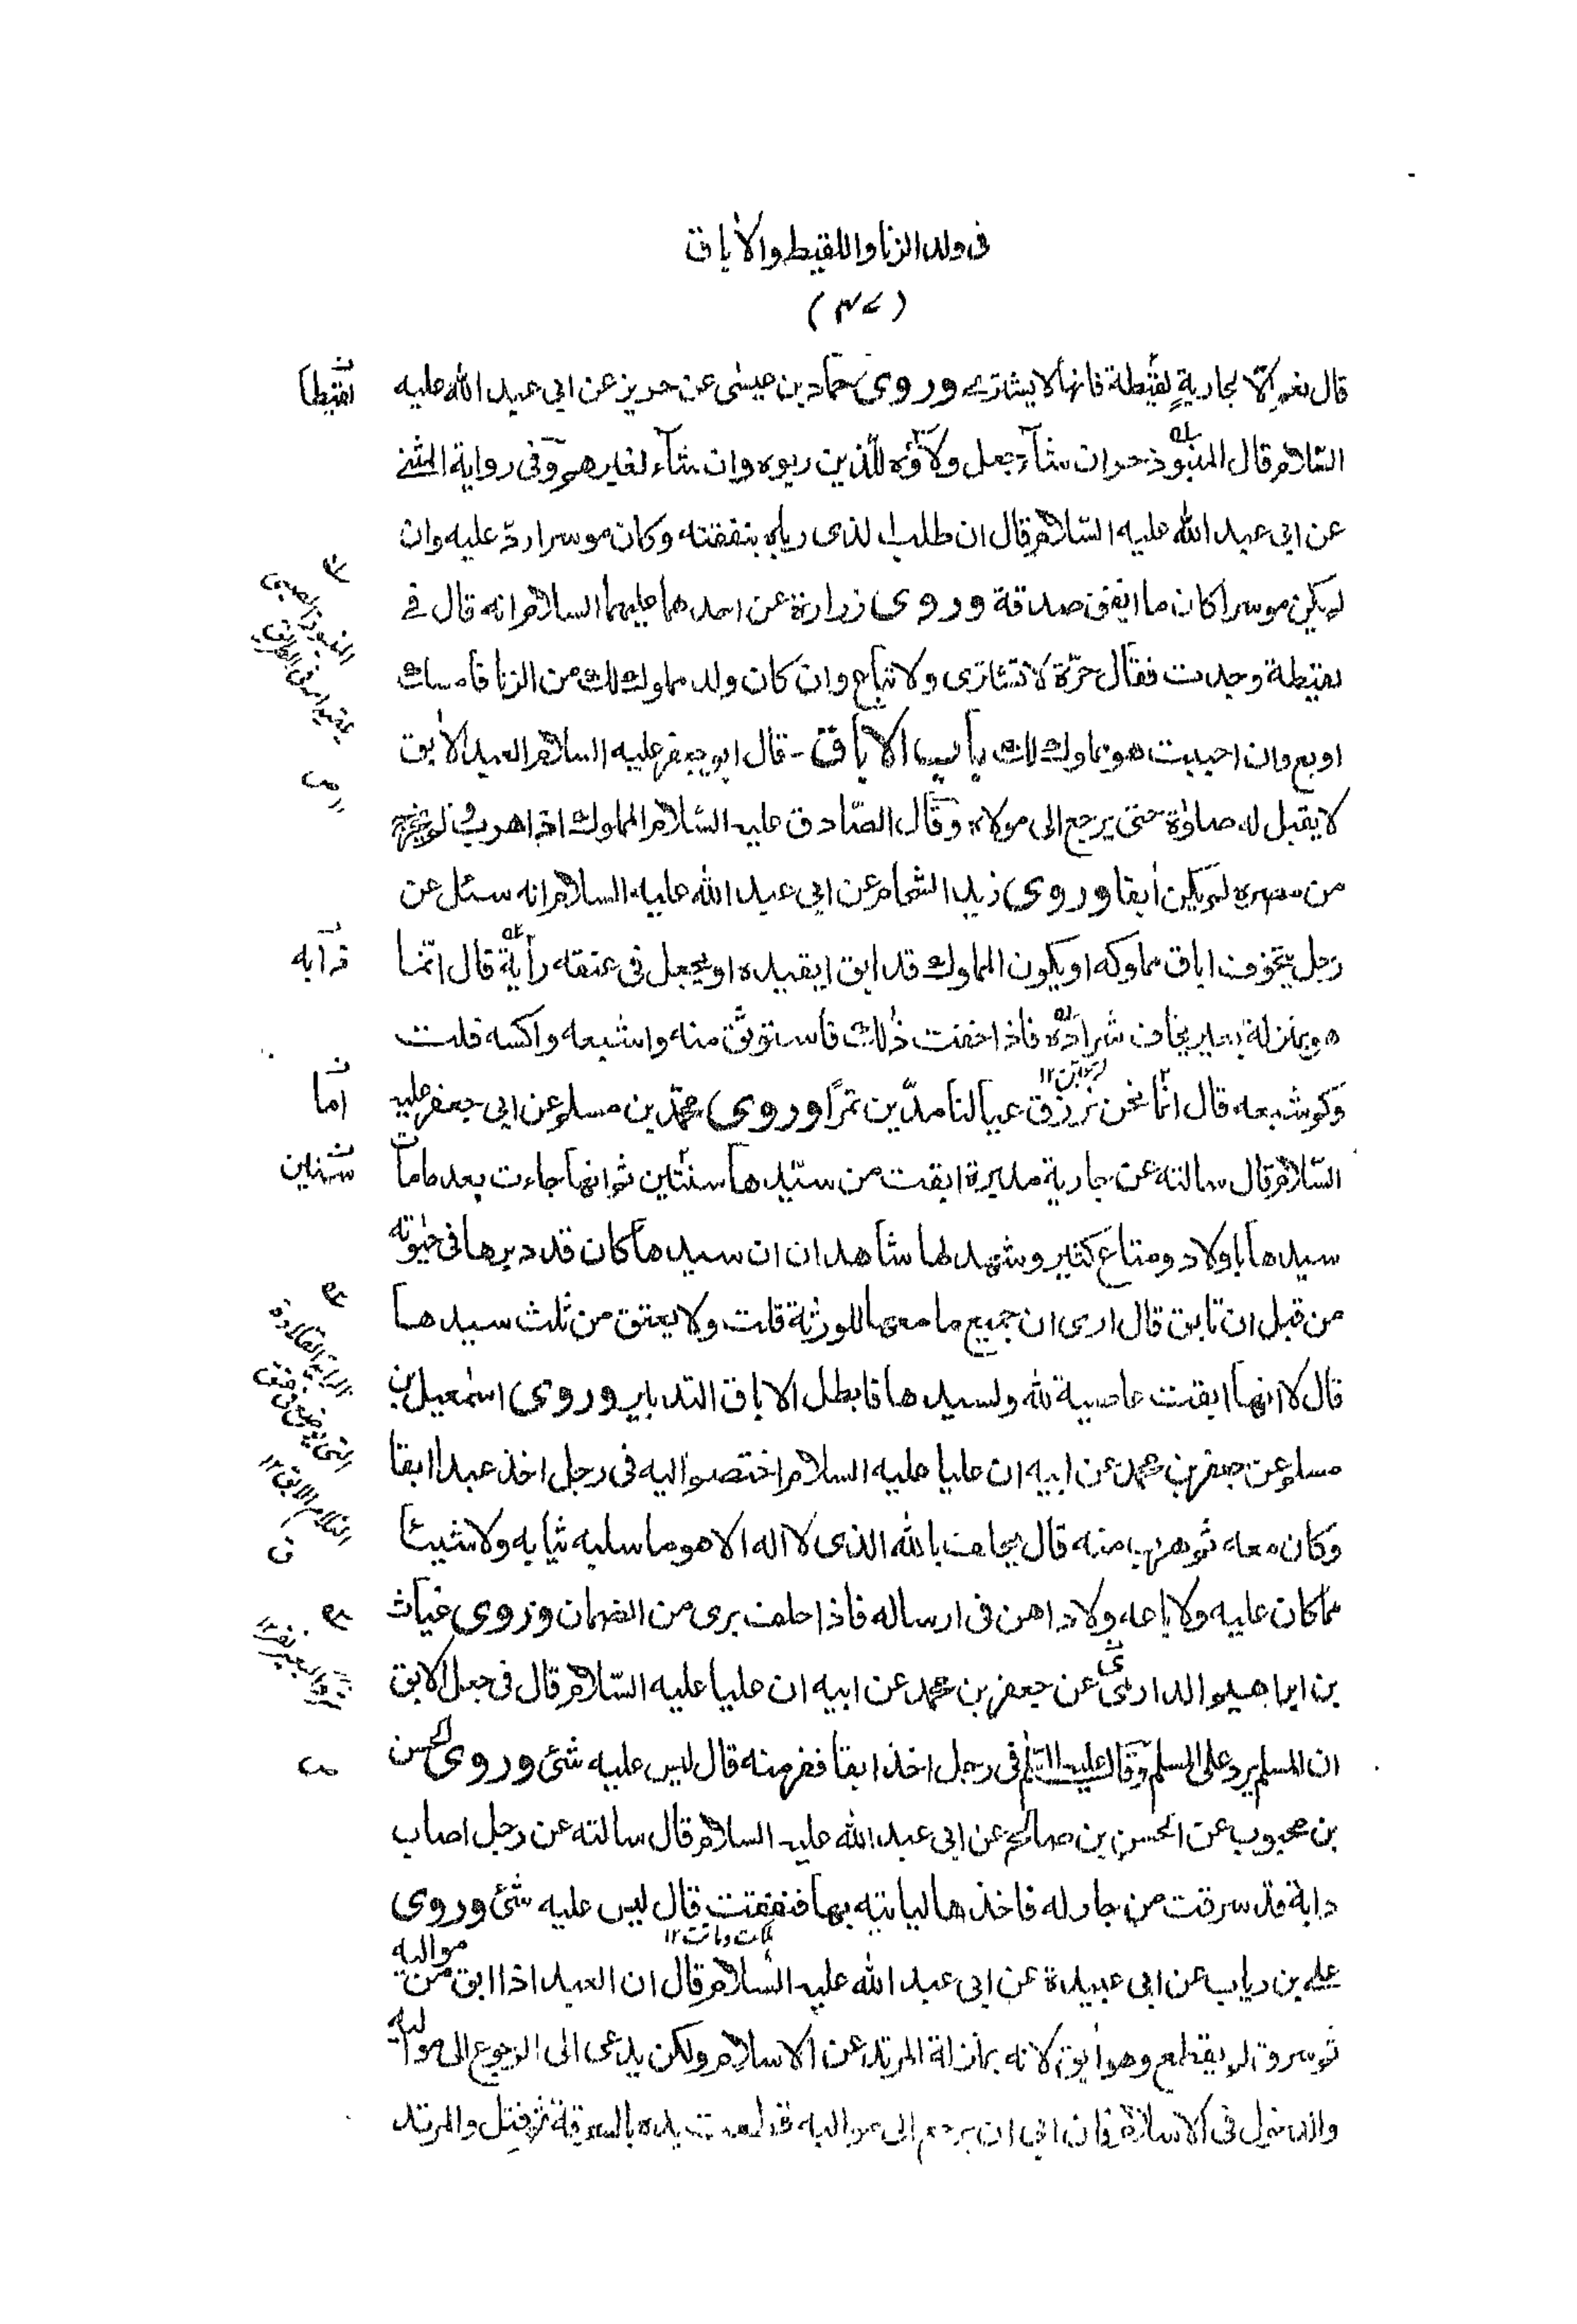 فى ولد الزنا واللقيط والاباق
(٤٧)
قال نعم الّا جارية لقيطة فانها لا يشترے وروى حمّاد بن عيسٰى عن حريز عن ابى عبد الله عليه
السّلام قال المنبوذ حر ان شآء جعل ولاؤه للّذين ربوه وان شآء لغيرهم وفى رواية المثنے
عن ابى عبد الله عليه السّلام قال ان طلب الذى رباه بنفقته وكان موسرا ردّ عليه وان
لم يكن موسرا كان ما انفق صدقة وروى زرارة عن احدهما عليهما السلام انه قال فے
لقيطة وجدت فقال حرّة لا تشترى ولا تباع وان كان ولد مملوك لك من الزنا فامسك
او بع وان احببت هو مملوك لك باب الاباق - قال ابو جعفر عليه السلام العبد الاٰبق
لا يقبل له صلوٰة حتى يرجع الى مولاه وقال الصّادق عليه السّلام المملوك اذا هرب ولم يخرج
من مصره لم يكن اٰبقا وروى زيد الشحام عن ابى عبد الله عليه السلام انه سئل عن
رجل يتخوف اباق مملوكه او يكون المملوك قد ابق ايقيده او يجعل فى عنقه رأية قال انّما
هو بمنزلة بعير يخاف شراده فاذا خفت ذٰلك فاستوثق منه واشبعه واكسه قلت
وكم شبعه قال انّما نحن نرزق عيالنا مدّين تمرًا وروى محمّد بن مسلم عن ابى جعفر عليه
السّلام قال سالته عن جارية مدبرة ابقت من سيّدها سنتين ثم انها جاءت بعد ما مات
سيدها باولاد ومتاع كثير وشهد لها شاهدان ان سيدها كان قد دبرها فى حيٰوته
من قبل ان تابق قال ارى ان جميع ما معها للورثة قلت ولا يعتق من ثلث سيدها
قال لا انها ابقت عاصية لله ولسيدها فابطل الاباق التدبير وروى اسمٰعيل بن
مسلم عن جعفر بن محمد عن ابيه ان عليا عليه السلام اختصموا اليه فى رجل اخذ عبدا ابقا
وكان معه ثم هرب منه قال يحلف بالله الذى لا اله الا هو ما سلبه ثيابه ولا شيئا
مما كان عليه ولا باعه ولا داهن فى ارساله فاذا حلف برى من الضمان وروى غياث
بن ابراهيم الدارمى عن جعفر بن محمد عن ابيه ان عليا عليه السّلام قال فى جعل الابق
ان المسلم يرد على المسلم وقال عليه السّلم فى رجل اخذ ابقا ففر منه قال ليس عليه شئ وروى الحسن
بن محبوب عن الحسن بن صالح عن ابى عبد الله عليه السلام قال سالته عن رجل اصاب
دابة قد سرقت من جار له فاخذها لياتيه بها فنفقت قال ليس عليه شئ وروى
علے بن رياب عن ابى عبيدة عن ابى عبد الله عليه السّلام قال ان العبد اذا ابق من مواليه
ثم سرق لم يقطع وهو اٰبق لانه بمنزلة المرتد عن الاسلام ولكن يدعى الى الرجوع الى مواليه
والدخول فى الاسلام فان ابى ان يرجع الى مواليه قطعت يده بالسرقة ثم قتل والمرتد
لقيطا
المنبوذ الصبى
امّا
الراية القلادة
التى توضع فى عنق
الغلام الابق ١٢
هلكت وماتت ١٢